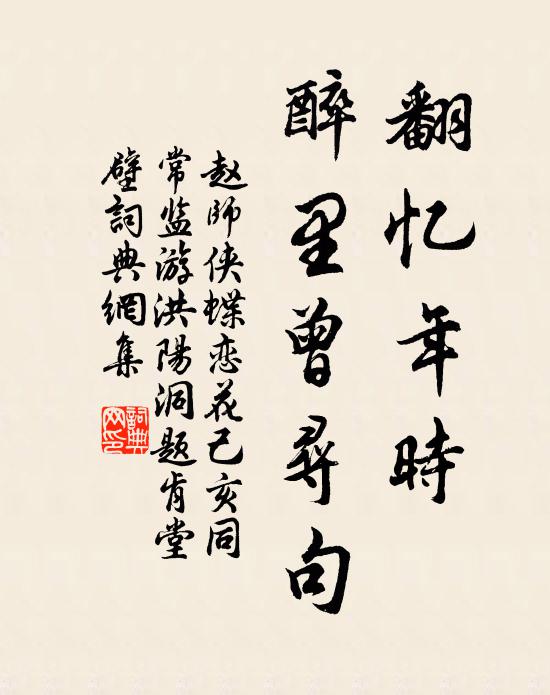 翻忆年時
醉里曾尋句
赵師侠蝶恋花己亥同
常监游洪陽洞题肯堂
壁詞典網集
詞典网印